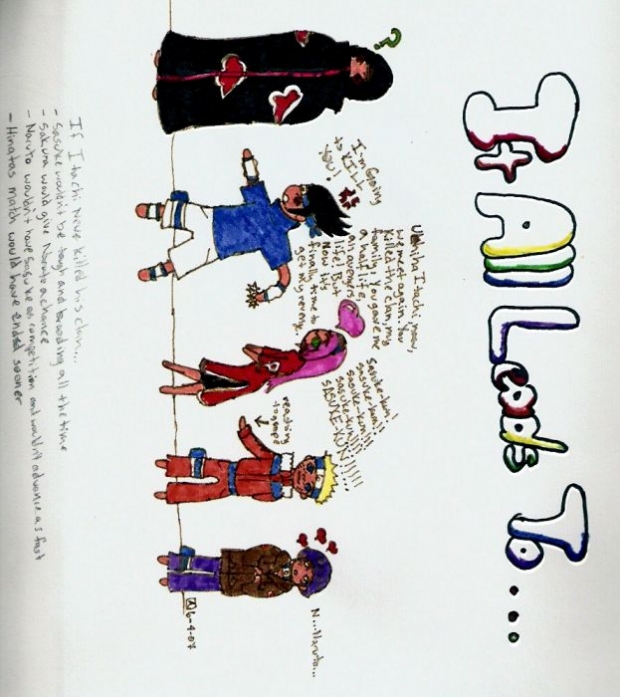 It All Leads To...
?
Uchiha Itachi
we meet again. You
killed the clan, my
family. You gave me
a nasty life,
an avengers
life! But
Now it's
finally time to
get my revenge.
I'm Going
to KILL
YOU!
Sasuke-kun!
sasuke-kun!!
sasuke-kun!!!
sasuke-kun!!!!
SASUKE-KUN!!!!!
reaching
to grope
N...Naruto...
A 6-4-07
If Itachi killed his clan...
- Sasuke wouldn't be and brooding all the time
- Sakura would give Naruto a chance
- Naruto wouldn't have Sasuke as competition and wouldn't advance as fast
- Hinatas match would have ended sooner